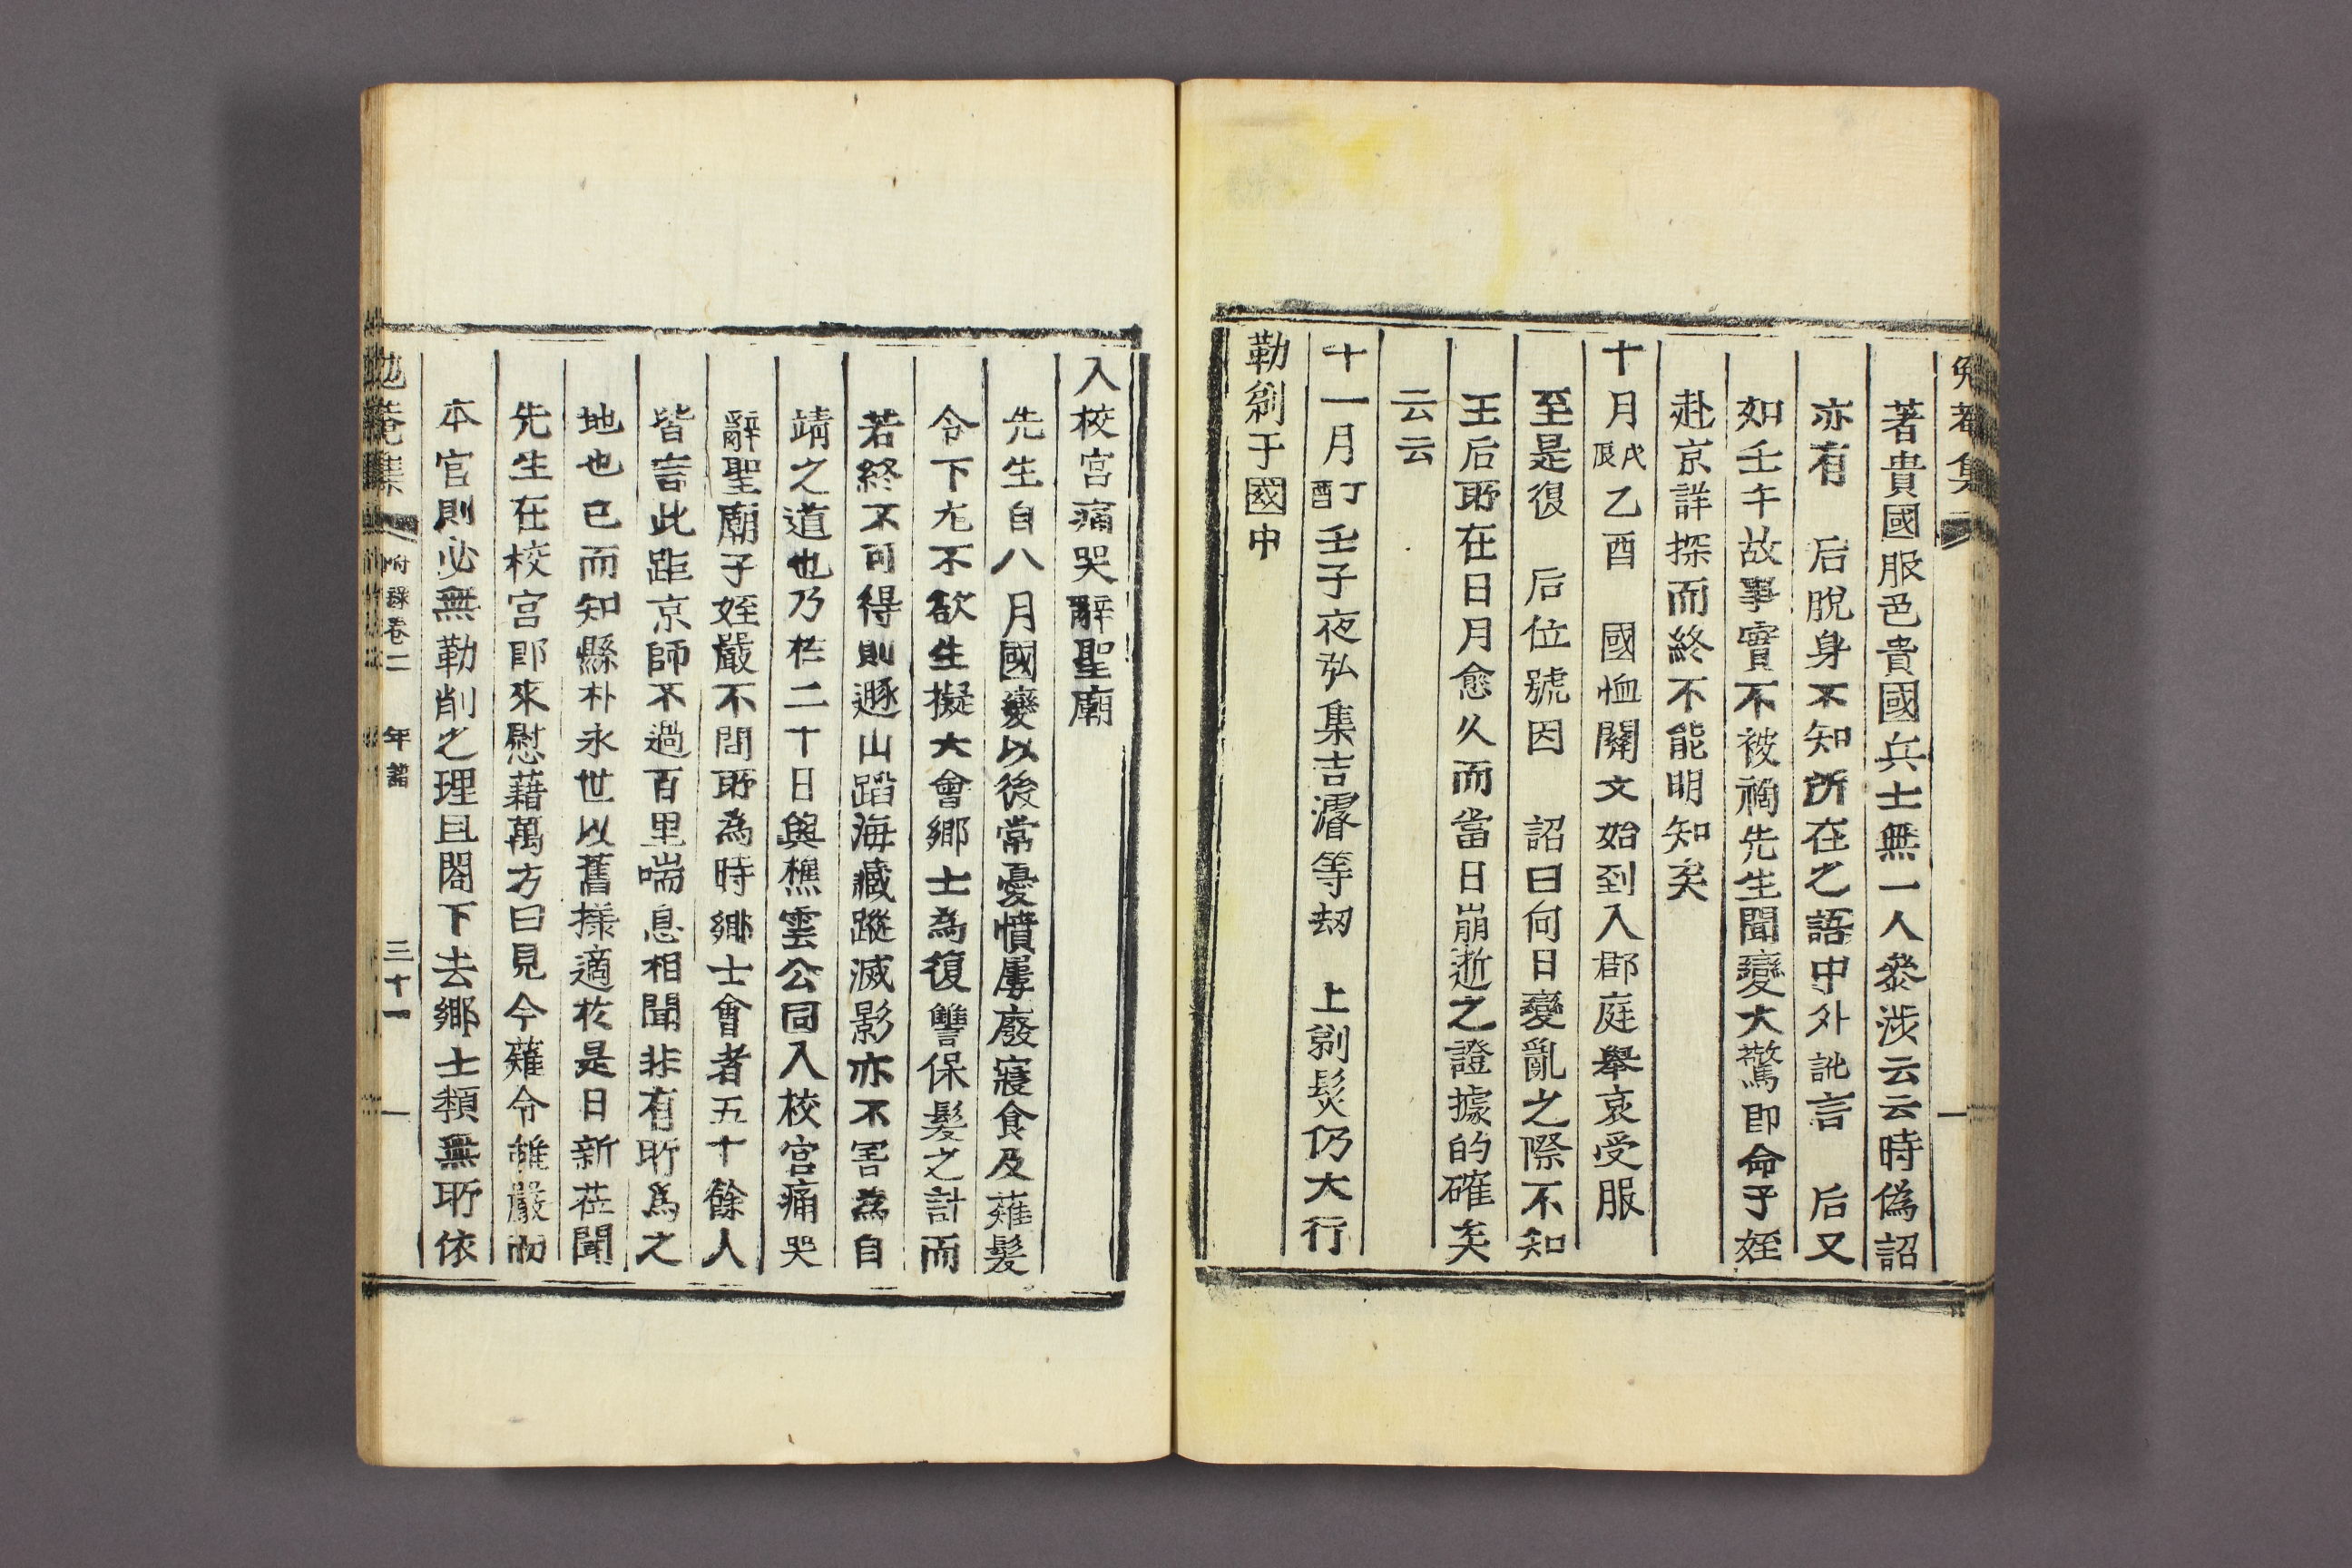 著貴國服色貴國兵士無一人叅涉云云時偽詔
亦有 后脫身不知所在之語中外訛言 后又
如壬午故事實不被禍先生聞變大驚卽命子姪
赴京詳探而終不能明知矣
十月戊辰乙酉 國恤關文始到入郡庭擧哀受服
至是復 后位號因 詔曰何日變亂之際不知
王后所在日月愈久而當日崩逝之證據的確矣
云云
十一月丁酉壬子夜弘集吉濬等刼 上剃髮仍大行
勒剃于國中
入校宮痛哭辭聖廟
先生自八月國變以後常憂憤屢廢寢食及薙髮
令下尤不欲生擬大會鄉士為復讐保髮之計而
若終不可得則遯山蹈海藏蹤滅影亦不害為自
靖之道也乃於二十日與樵雲公同入校宮痛哭
辭聖廟子姪嚴不問所為時鄉士會者五十餘人
皆言此距京師不過百里喘息相聞非有所為之
地也已而知縣朴永世以舊㨾適於是日新莅聞
先生在校宮卽來慰藉萬方曰見今薙令雖嚴而
本官則必無勒削之理且閤下去鄉士類無所依
菴集 附錄卷二 年譜 三十一